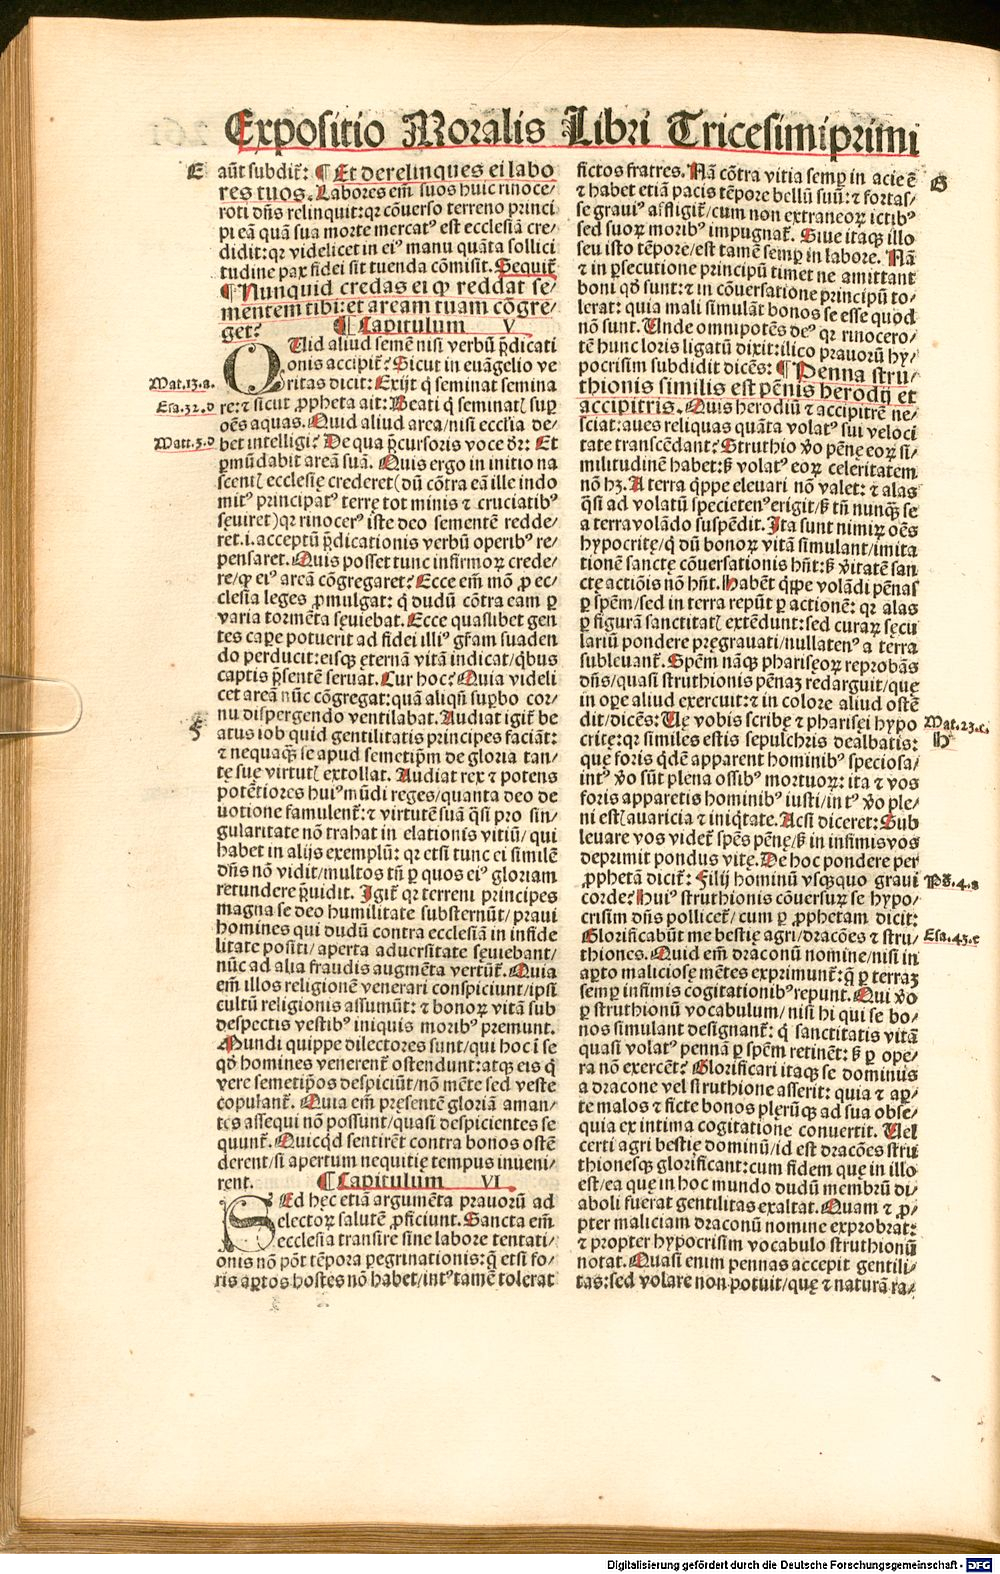 Expositio Moralis Libri Tricesimiprimi
E
aūt subdit᷑: ¶ Et derelinques ei labo
res tuos. Labores em̄ suos huic rinoce/
roti dn̄s relinquit: qꝛ cōuerso terreno princi
pi eā quā sua morte mercatꝰ est ecclesiā cre/
didit: qꝛ videlicet in eiꝰ manu quāta sollici
tudine pax fidei sit tuenda cōmisit. Sequit᷑
¶ Nunquid credas ei ꝙ reddat se/
mentem tibi: et aream tuam cōgre/
get? ¶ Capitulum V
QUid aliud semē nisi verbū p̄dicati
onis accipit᷑? Sicut in euāgelio ve
Mat.13.a.
ritas dicit: Exijt q̄ seminat semina
Esa.32.d
re: ⁊ sicut ꝓpheta ait: Beati q̄ seminat} suꝑ
oēs aquas. Quid aliud area/nisi eccl̄ia de/
Matt.3.d
bet intelligi? De qua p̄cursoris voce dr̄: Et
ꝑmūdabit areā suā. Quis ergo in initio na
scent} ecclesię crederet (dū cōtra eā ille indo
mitꝰ principatꝰ terrę tot minis ⁊ cruciatibꝰ
sęuiret) qꝛ rinocerꝰ iste deo sementē redde/
ret.i.acceptū p̄dicationis verbū operibꝰ re/
pensaret. Quis posset tunc infirmoꝝ crede/
re/ꝙ eiꝰ areā cōgregaret? Ecce em̄ mō ꝓ ec/
clesia leges ꝓmulgat: q̄ dudū cōtra eam ꝑ
varia tormēta sęuiebat. Ecce quaslibet gen
tes capere potuerit ad fidei illiꝰ gr̄am suaden
do perducit: eisqꝫ ęternā vitā indicat/q̄bus
captis p̄sentē seruat. Cur hoc? Quia videli
cet areā nūc cōgregat: quā aliqn̄ suꝑbo cor/
F
nu dispergendo ventilabat. Audiat igit᷑ be
atus iob quid gentilitatis principes faciāt:
⁊ nequaqꝫ se apud semetip̄m de gloria tan/
tę suę virtut} extollat. Audiat rex ⁊ potens
potētiores huiꝰ mūdi reges/quanta deo de
uotione famulent᷑: ⁊ virtutē suā q̄si pro sin/
gularitate nō trahat in elationis vitiū/qui
habet in alijs exemplū: qꝛ etsi tunc ei similē
dn̄s nō vidit/multos tn̄ ꝑ quos eiꝰ gloriam
retundere p̄uidit. Igit᷑ qꝛ terreni principes
magna se deo humilitate substernūt/praui
homines qui dudū contra ecclesiā in infide
litate positi/aperta aduersitate sęuiebant/
nūc ad alia fraudis augmēta vertūt᷑. Quia
em̄ illos religionē venerari conspiciunt/ipsi
cultū religionis assumūt: ⁊ bonoꝝ vitā sub
despectis vestibꝰ iniquis moribꝰ premunt.
Mundi quippe dilectores sunt/qui hoc ī se
qd̄ homines venerent᷑ ostendunt: atqꝫ eis q̄
vere semetip̄os despiciūt/nō mēte sed veste
copulant᷑. Quia em̄ pręsentē gloriā aman/
tes assequi nō possunt/quasi despicientes se
quunt᷑. Quicq̄d sentirēt contra bonos ostē
derent/si apertum nequitię tempus inueni/
rent. ¶ Capitulum VI
SEd hęc etiā argumēta prauorū ad
electoꝝ salutē ꝓficiunt. Sancta em̄
ecclesia transire sine labore tentati/
onis nō pōt tēpora ꝑegrinationis: q̄ etsi fo/
ris aꝑtos hostes nō habet/intꝰ tamē tolerat
fictos fratres. Nā cōtra vitia semꝑ in acie ē
G
⁊ habet etiā pacis tēpore bellū suū: ⁊ fortas/
se grauiꝰ affligit᷑/cum non extraneoꝝ ictibꝰ
sed suoꝝ moribꝰ impugnat᷑. Siue itaqꝫ illo
seu isto tēpore/est tamē semꝑ in labore. Nā
⁊ in ꝑsecutione principū timet ne amittant
boni qd̄ sunt: ⁊ in cōuersatione principū to/
lerat: quia mali simulāt bonos se esse quod
nō sunt. Unde omnipotēs deꝰ qꝛ rinocero/
tē hunc loris ligatū dixit: ilico prauorū hy/
pocrisim subdidit dicēs: ¶ Penna stru/
thionis similis est pēnis herodij et
accipitris. Quis herodiū ⁊ accipitrē ne/
sciat: aues reliquas quāta volatꝰ sui veloci
tate transcēdant? Struthio v̄o pēnę eoꝝ si/
militudinē habet: sꝫ volatꝰ eoꝝ celeritatem
nō hꝫ. A terra q̄ppe eleuari nō valet: ⁊ alas
q̄si ad volatū specietenꝰ erigit/sꝫ tn̄ nunqꝫ se
a terra volādo suspēdit. Ita sunt nimiꝝ oēs
hypocritę/q̄ dū bonoꝝ vitā simulant/imita
tionē sanctę cōuersationis hn̄t: sꝫ v̄itatē san
ctę actiōis nō hn̄t. Habēt q̄ppe volādi pēnas
ꝑ spēm/sed in terra repūt ꝑ actionē: qꝛ alas
ꝑ figurā sanctitat} extēdunt: sed curaꝝ sęcu
lariū pondere pręgrauati/nullatenꝰ a terra
subleuant᷑. Spēm nāqꝫ phariseoꝝ reprobās
dn̄s/quasi struthionis pēnaꝫ redarguit/quę
in oꝑe aliud exercuit: ⁊ in colore aliud ostē
dit/dicēs: Uę vobis scribę ⁊ pharisęi hypo
Mat.23.c.
critę: qꝛ similes estis sepulchris dealbatis:
H
quę foris q̄dē apparent hominibꝰ speciosa/
intꝰ v̄o sūt plena ossibꝰ mortuoꝝ: ita ⁊ vos
foris apparetis hominibꝰ iusti/intꝰ v̄o ple/
ni est} auaricia ⁊ iniq̄tate. Acsi diceret: Sub
leuare vos videt᷑ spēs pēnę/sꝫ in infimis vos
deprimit pondus vitę. De hoc pondere per
ꝓphetā dicit᷑: Filij hominū vsqꝫquo graui
Ps.4.a
corde? Huiꝰ struthionis cōuersuꝝ se hypo/
crisim dn̄s pollicet᷑/cum ꝑ ꝓphetam dicit:
Glorificabūt me bestię agri/dracōes ⁊ stru/
Esa.43.c
thiones. Quid em̄ draconū nomine/nisi in
aꝑto maliciosę mētes exprimunt᷑: q̄ ꝑ terraꝫ
semꝑ infimis cogitationibꝰ repunt. Qui v̄o
ꝑ struthionū vocabulum/nisi hi qui se bo/
nos simulant designant᷑: q̄ sanctitatis vitā
quasi volatꝰ pennā ꝑ spēm retinēt: sꝫ ꝑ ope/
ra nō exercēt? Glorificari itaqꝫ se dominus
a dracone vel struthione asserit: quia ⁊ aꝑ/
te malos ⁊ ficte bonos plęrūqꝫ ad sua obse/
quia ex intima cogitatione conuertit. Uel
certi agri bestię dominū/id est dracōes stru
thionesqꝫ glorificant: cum fidem quę in illo
est/ea quę in hoc mundo dudū membrū di/
aboli fuerat gentilitas exaltat. Quam ⁊ ꝓ/
pter maliciam draconū nomine exprobrat:
⁊ propter hypocrisim vocabulo struthionū
notat. Quasi enim pennas accepit gentili/
tas: sed volare non potuit/quę ⁊ naturā ra/
Digitalisierung gefördert durch die Deutsche Forschungsgemeinschaft - DFG